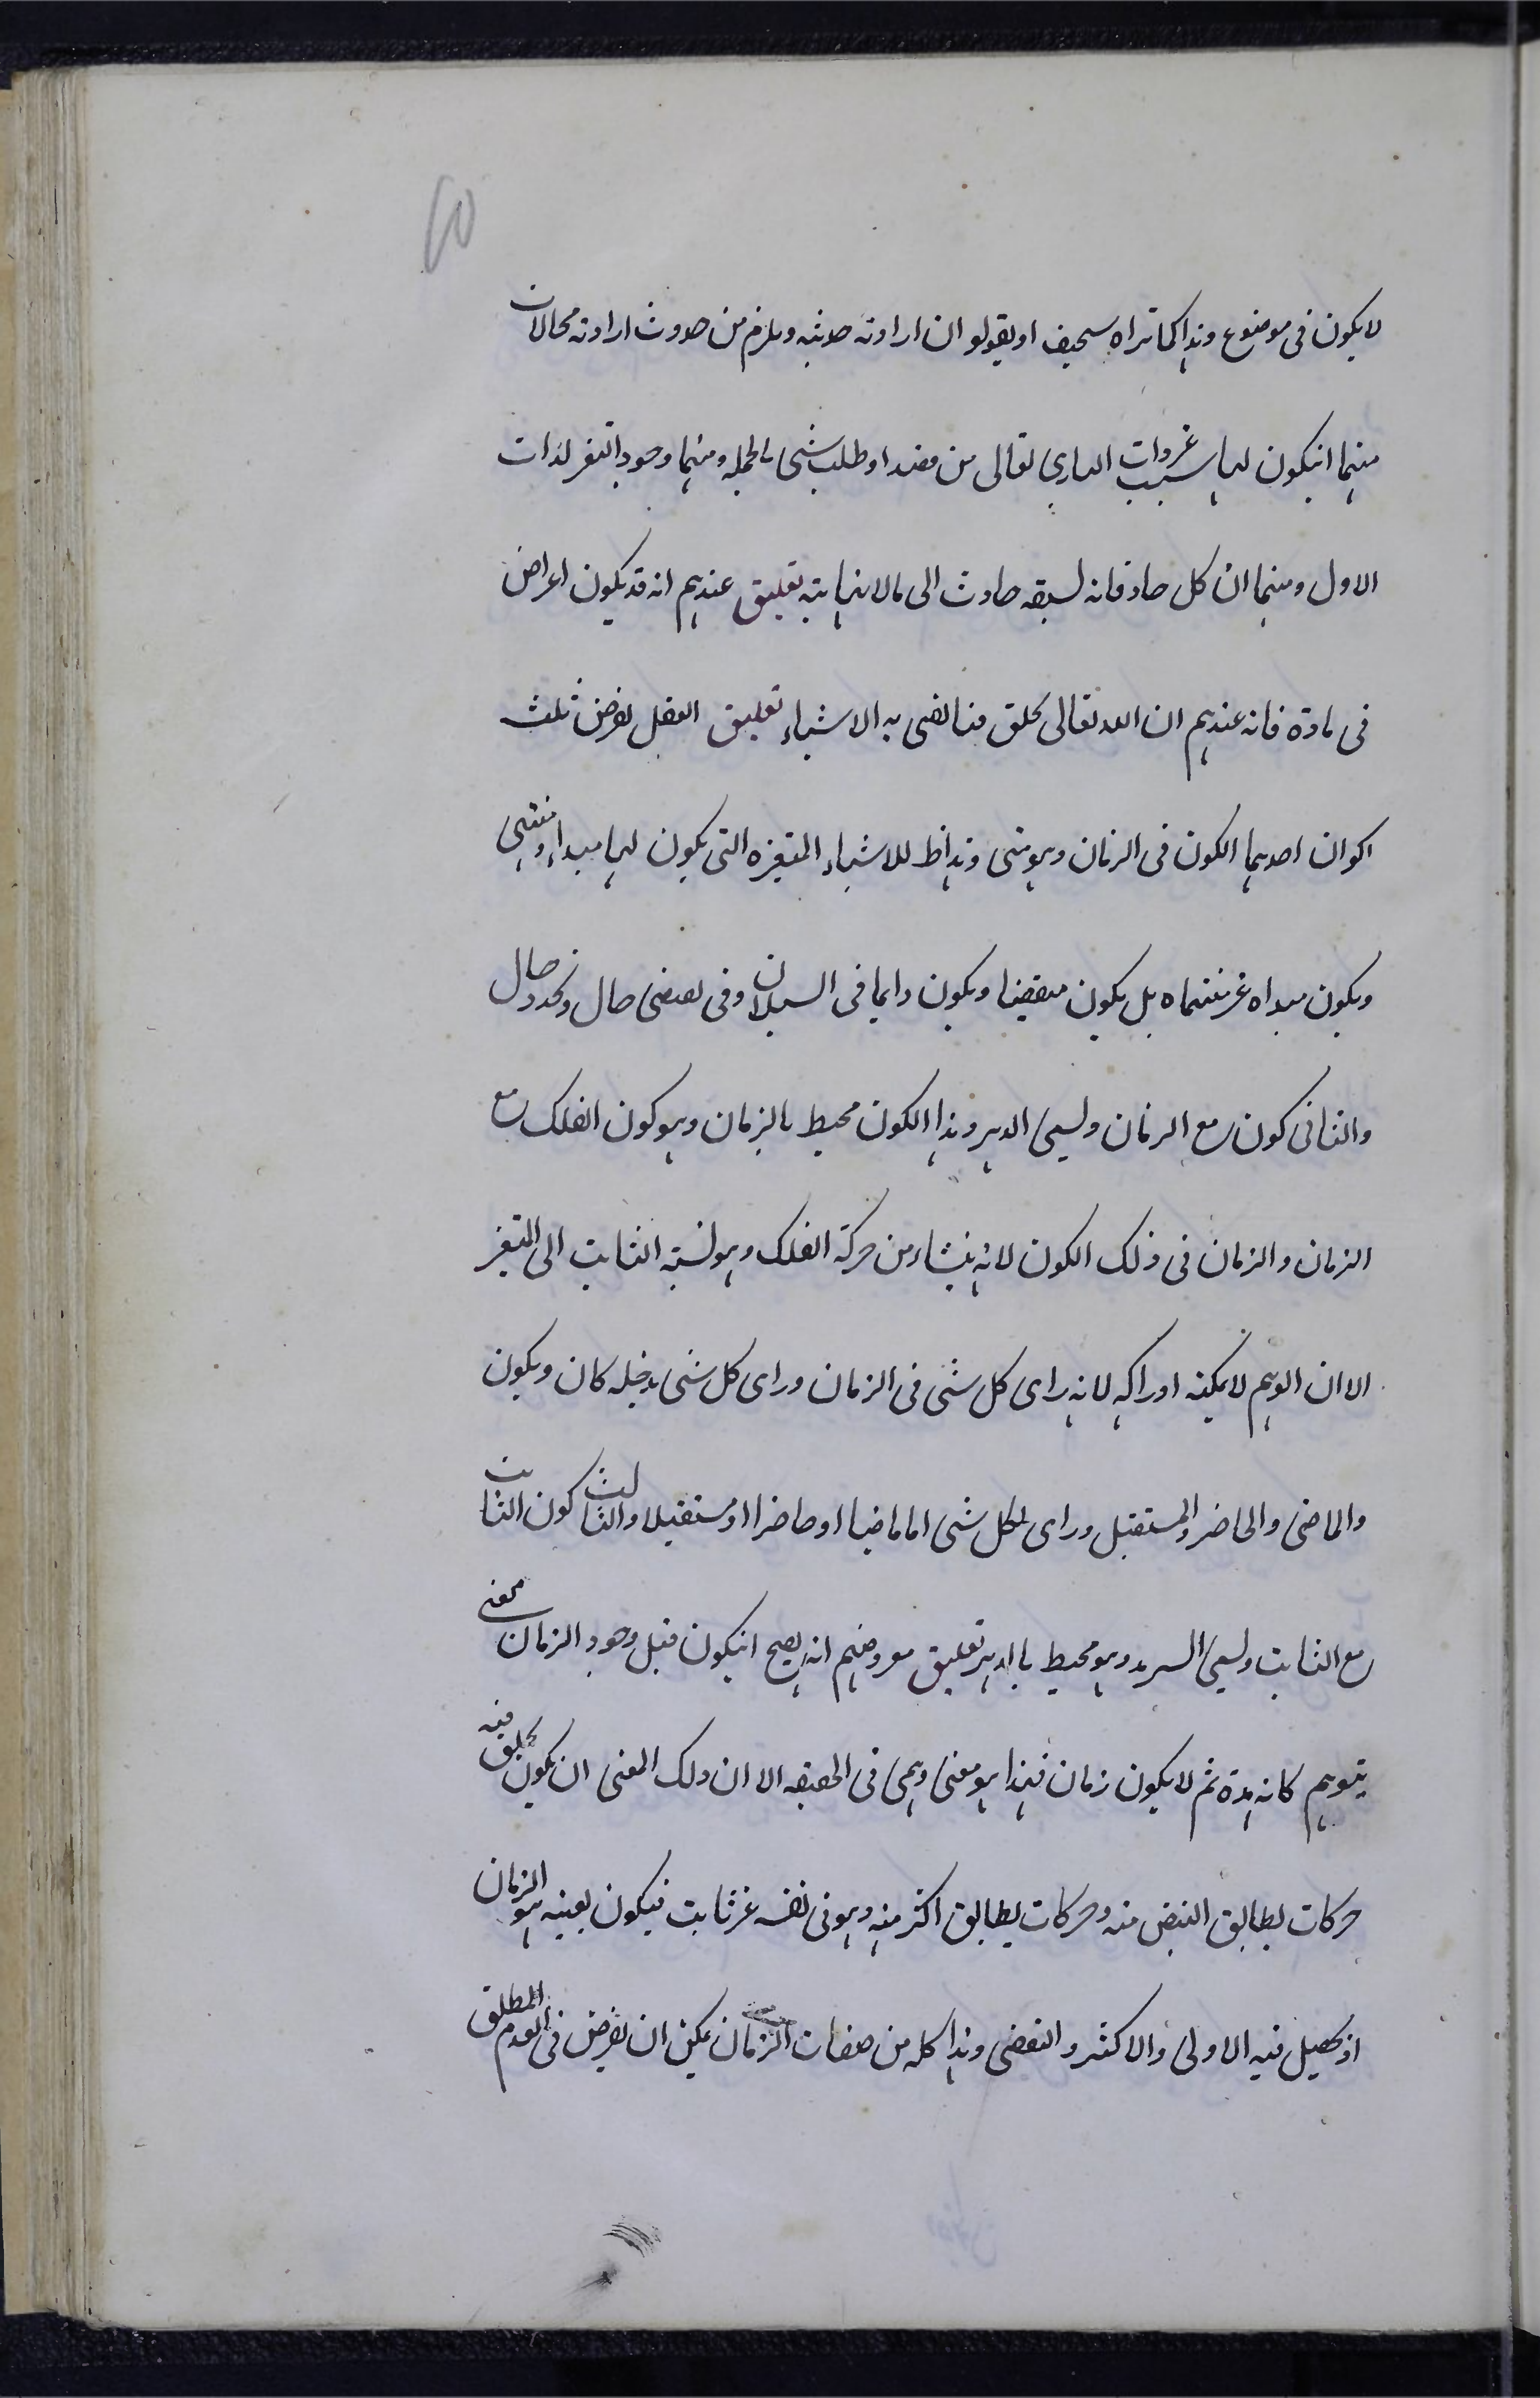 لا يكون فى موضوع وهذا كما تراه سخيف او يقولو ان ارادته حديثه ويلزم من حدوث ارادته محالات
منها انيكون لها سبب غير ذات البارى تعالى من قصد او طلب شى بالجمله ومنها وجود التغير لذات
الاول ومنها ان كل حاد فانه يسبقه حادث الى مالا نهايته تعليق عندهم انه قد يكون اعراض
فى مادة فانه عندهم ان الله تعالى يخلق فنا يفنى به الاشياء تعليق العقل يفرض ثلث
اكوان احدها الكون فى الزمان وهو متى وهذا ظ للاشياء المتغيره التى يكون لها مبداء ومنتهى
ويكون مبداه غير منتهاه بل يكون متقضيا ويكون دايما فى السيلان وفى تقضى حال وتجدد حال
والثانى كون مع الزمان ويسمى الدهر وهذا الكون محيط بالزمان وهو كون الفلك مع
الزمان والزمان فى ذلك الكون لانه ينشاء من حركة الفلك وهو نسبته الثابت الى المتغير
الا ان الوهم لا يمكنه ادراكه لانه راى كل شى فى الزمان وراى كل شى يدخله كان ويكون
والماضى والحاضر والمستقبل وراى لكل شى اما ماضيا او حاضرا او مستقبلا والثالث كون الثابت
مع الثابت ويسمى السرمد وهو محيط بالدهر تعليق مفروضهم انه يصح انيكون قبل وجود الزمان معنى
يتوهم كانه مدة ثم لا يكون زمان فهذا هو معنى وهمى فى الحقيقه الا ان ذلك المعنى ان يكون يخلق فيه
حركات يطابق البعض منه وحركات يطابق اكثر منه وهو فى نفسه غير ثابت فيكون بعينه هو الزمان
اذ يحصل فيه الاولى والاكثر والتقضى وهذا كله من صفات الزمان يمكن ان يفرض فى العدم المطلق